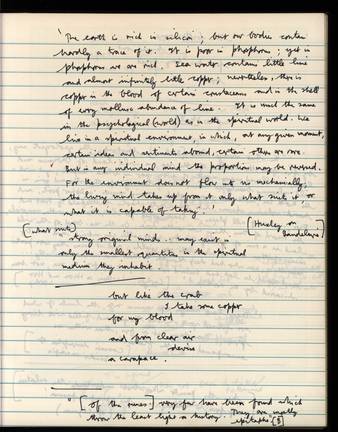 'The earth is rich in silicon; but our bodies contain
hardly a trace of it. It is poor in phosphorus; yet in
phosphorus we are rich. Sea water contains little lime
and almost infinitely little copper; nevertheless, there is
copper in the blood of certain crustaceans and in the shell
of every mollusc abundance of lime. It is much the same
in the psychological (world) as in the spiritual world. We
live in a spiritual environment in which, at any given moment,
certain ideas and sentiments abound, certain others are rare.
But in any individual mind the proportion may be reversed.
For the environment does not flow into us mechanically;
the living mind takes up from it only what suits it, or
what it is capable of taking.'
[Huxley on
Baudelaire]
[what suits]
strong original minds may exist in
only the smallest quantities in the spiritual
medium they inhabit.
but like the crab
I take some copper
for my blood
and from clear air
devise
a carapace.
" [of the runes] very few have been found which
throw the least light on history. They are mostly
epitaphs [ ]